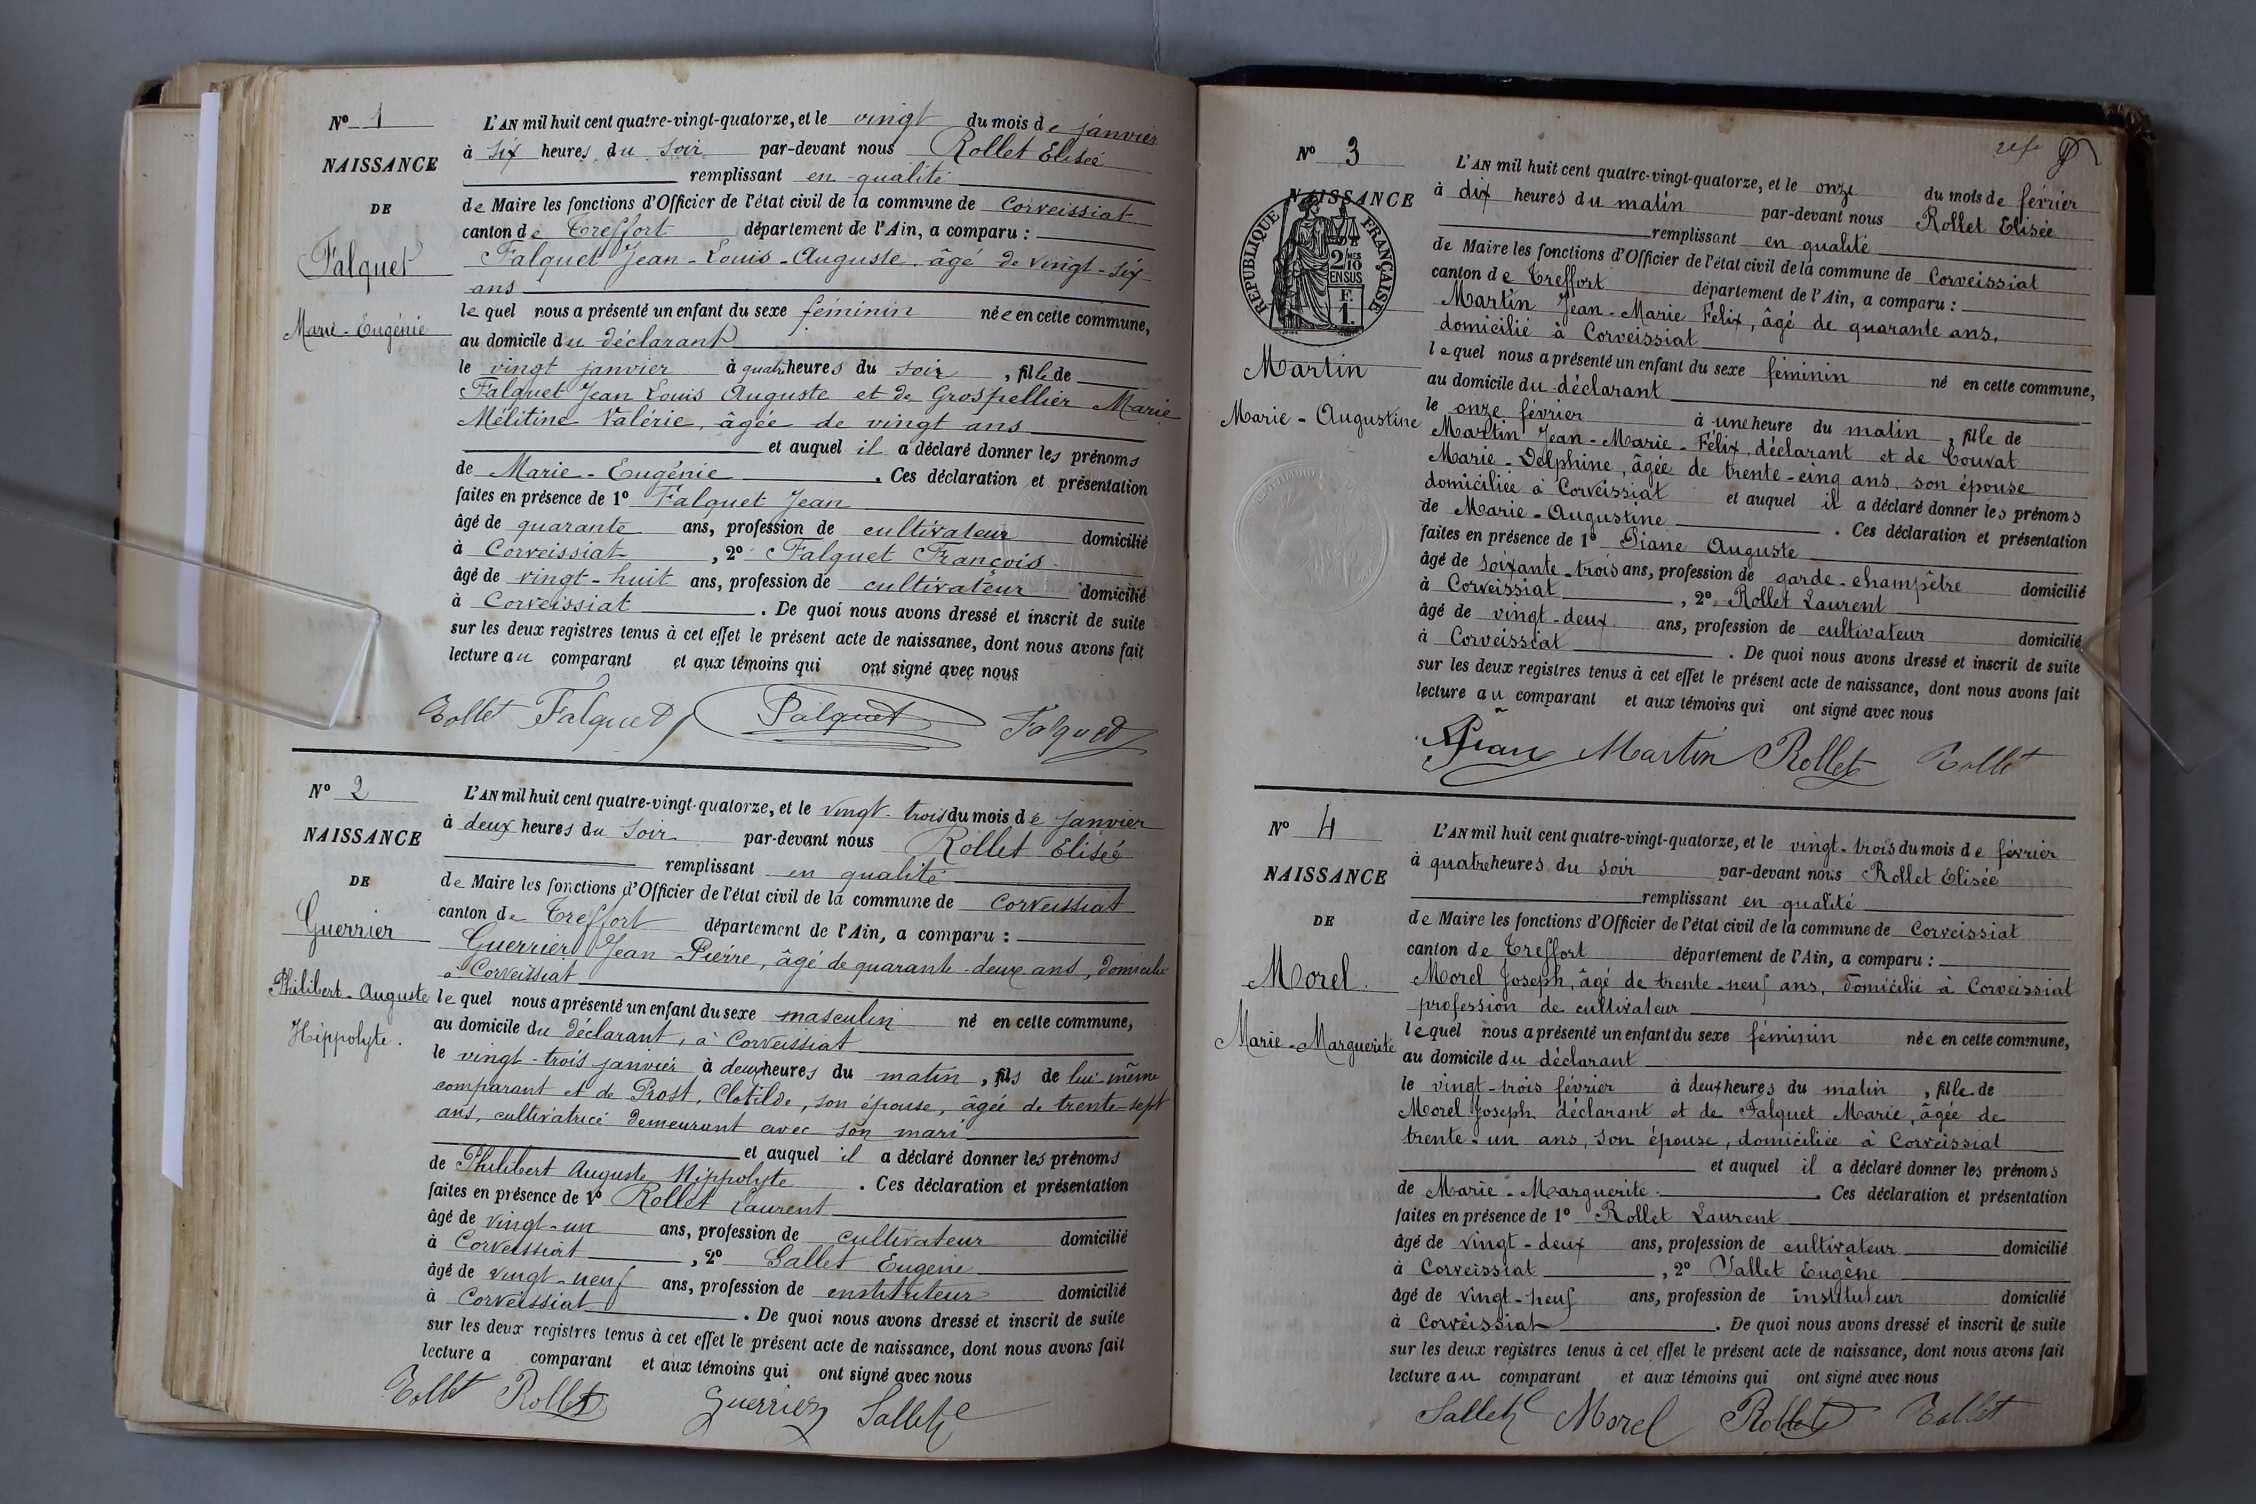 N° 1
NAISSANCE
DE
Falquet
Marie-Eugénie
L'AN mil huit cent quatre-vingt-quatorze, et le vingt du mois de janvier
à six heures du soir par-devant nous Rollet Elisée
remplissant en qualité
de Maire les fonctions d'Officier de l'état civil de la commune de Corveissiat
canton de Treffort département de l'Ain, a comparu :
Falquet Jean-Louis-Auguste, âgé de vingt-six
ans
lequel nous a présenté un enfant du sexe féminin née en cette commune,
au domicile du déclarant
le vingt janvier à quatre heures du soir, fille de
Falquet Jean Louis Auguste et de Grospellier Marie
Mélitine Valérie, âgée de vingt ans
et auquel il a déclaré donner les prénoms
de Marie-Eugénie. Ces déclaration et présentation
faites en présence de 1° Falquet Jean
âgé de quarante ans, profession de cultivateur domicilié
à Corveissiat, 2° Falquet François
âgé de vingt-huit ans, profession de cultivateur domicilié
à Corveissiat. De quoi nous avons dressé et inscrit de suite
sur les deux registres tenus à cet effet le présent acte de naissance, dont nous avons fait
lecture au comparant et aux témoins qui ont signé avec nous
Rollet Falquet Falquet Falquet
N° 2
NAISSANCE
DE
Guerrier
Philibert-Auguste
Hippolyte.
L'AN mil huit cent quatre-vingt-quatorze, et le vingt-trois du mois de janvier
à deux heures du soir par-devant nous Rollet Elisée
remplissant en qualité
de Maire les fonctions d'Officier de l'état civil de la commune de Corveissiat
canton de Treffort département de l'Ain, a comparu :
Guerrier Jean Pierre, âgé de quarante-deux ans, domicilié
à Corveissiat
lequel nous a présenté un enfant du sexe masculin né en cette commune,
au domicile du déclarant, à Corveissiat
le vingt-trois janvier à deux heures du matin, fils de lui-même
comparant et de Prost, Clotilde, son épouse, âgée de trente-sept
ans, cultivatrice demeurant avec son mari
et auquel il a déclaré donner les prénoms
de Philibert Auguste Hippolyte. Ces déclaration et présentation
faites en présence de 1° Rollet Laurent
âgé de vingt-un ans, profession de cultivateur domicilié
à Corveissiat, 2° Sallet Eugène
âgé de vingt-neuf ans, profession de instituteur domicilié
à Corveissiat. De quoi nous avons dressé et inscrit de suite
sur les deux registres tenus à cet effet le présent acte de naissance, dont nous avons fait
lecture a comparant et aux témoins qui ont signé avec nous
Rollet Rollet Guerrier Sallet E
N° 3
NAISSANCE
RÉPUBLIQUE FRANÇAISE
2/10 EN SUS
F. 1.
Martin
Marie-Augustine
L'AN mil huit cent quatre-vingt-quatorze, et le onze du mois de février
à dix heures du matin par-devant nous Rollet Elisée
remplissant en qualité
de Maire les fonctions d'Officier de l'état civil de la commune de Corveissiat
canton de Treffort département de l'Ain, a comparu :
Martin Jean-Marie Félix, âgé de quarante ans,
domicilié à Corveissiat
lequel nous a présenté un enfant du sexe féminin né en cette commune,
au domicile du déclarant
le onze février à une heure du matin, fille de
Martin Jean-Marie-Félix, déclarant et de Couvat
Marie-Delphine, âgée de trente-cinq ans, son épouse
domiciliée à Corveissiat et auquel il a déclaré donner les prénoms
de Marie-Augustine. Ces déclaration et présentation
faites en présence de 1° Piane Auguste
âgé de soixante-trois ans, profession de garde-champêtre domicilié
à Corveissiat, 2° Rollet Laurent
âgé de vingt-deux ans, profession de cultivateur domicilié
à Corveissiat. De quoi nous avons dressé et inscrit de suite
sur les deux registres tenus à cet effet le présent acte de naissance, dont nous avons fait
lecture au comparant et aux témoins qui ont signé avec nous
Martin Rollet Rollet
N° 4
NAISSANCE
DE
Morel.
Marie-Marguerite
L'AN mil huit cent quatre-vingt-quatorze, et le vingt-trois du mois de février
à quatre heures du soir par-devant nous Rollet Elisée
remplissant en qualité
de Maire les fonctions d'Officier de l'état civil de la commune de Corveissiat
canton de Treffort département de l'Ain, a comparu :
Morel Joseph, âgé de trente-neuf ans, domicilié à Corveissiat
profession de cultivateur
lequel nous a présenté un enfant du sexe féminin née en cette commune,
au domicile du déclarant
le vingt-trois février à deux heures du matin, fille de
Morel Joseph déclarant et de Falquet Marie, âgée de
trente-un ans, son épouse, domiciliée à Corveissiat
et auquel il a déclaré donner les prénoms
de Marie-Marguerite. Ces déclaration et présentation
faites en présence de 1° Rollet Laurent
âgé de vingt-deux ans, profession de cultivateur domicilié
à Corveissiat, 2° Sallet Eugène
âgé de vingt-neuf ans, profession de instituteur domicilié
à Corveissiat. De quoi nous avons dressé et inscrit de suite
sur les deux registres tenus à cet effet le présent acte de naissance, dont nous avons fait
lecture au comparant et aux témoins qui ont signé avec nous
Sallet E Morel Rollet Rollet